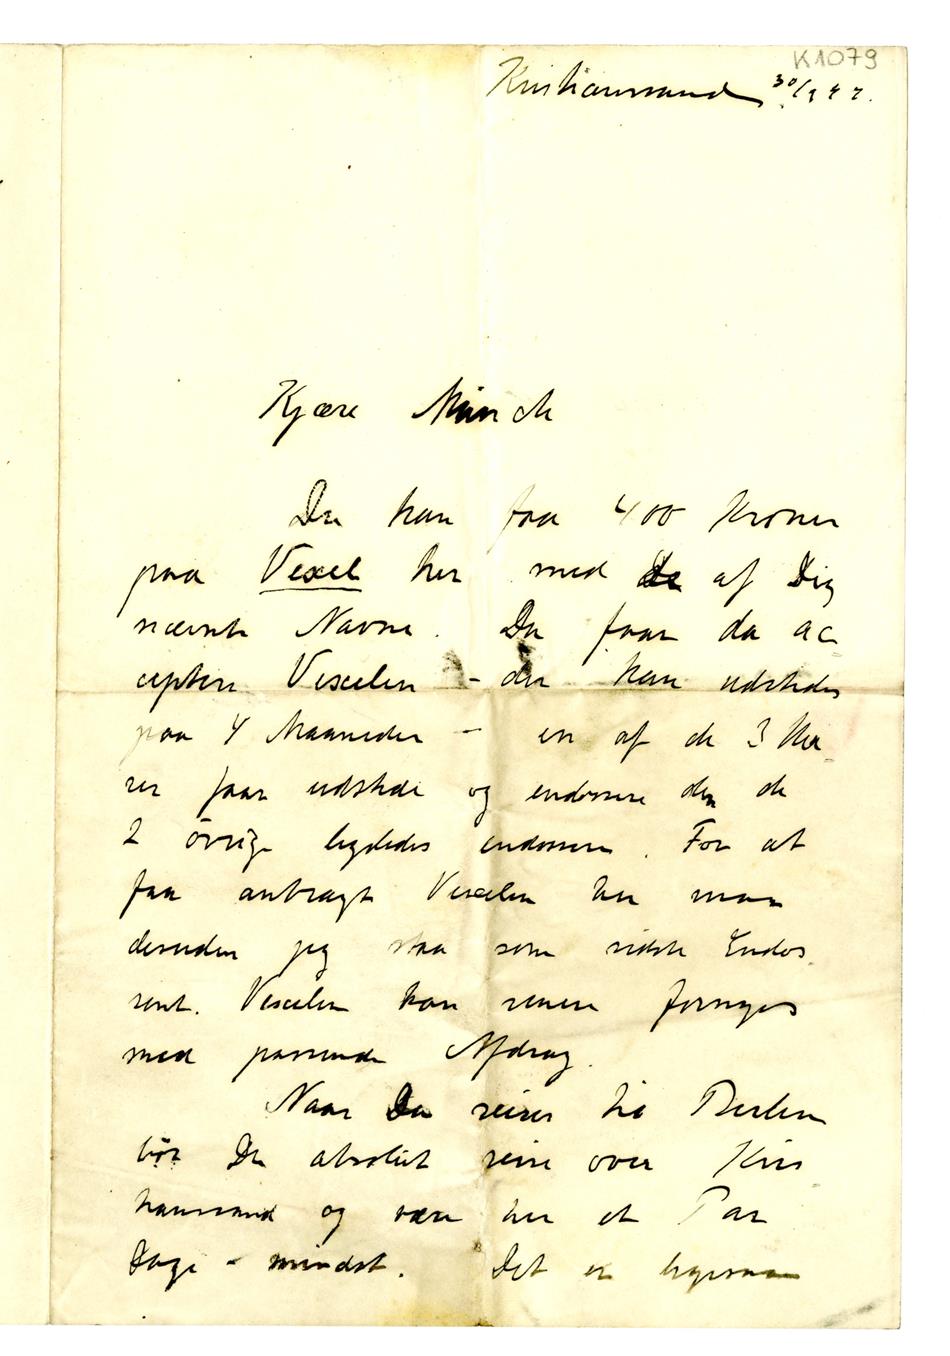 K1079
Kristianssand 30/9
Kjære Munch
Du kan faa 400 Kroner
paa Vexel her med De af Dig
nævnte Navne. Du faar da ac-
ceptere Vexelen – der kan udstedes
paa 4 Maaneder – en af de 3 Her-
rer faar udstede og endossere den de
2 övrige ligeledes endossere. For at
faa anbragt Vexelen her maa
desuden jeg staa som sidste Endos-
sent. Vexelen kan senere fornyes
med passende Afdrag.
Naar Du reiser til Berlin
bör Du absolut reise over Kris
tianssand og være her et Par
Dage – mindst. Det er ligesaa